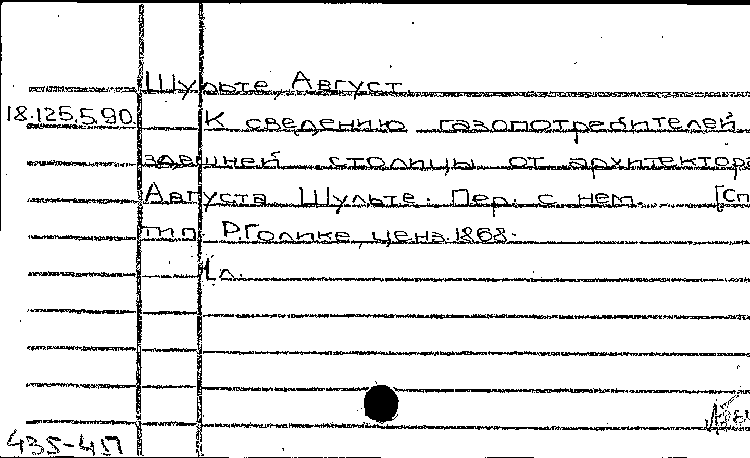 Шульте, Август.
18.125.5.90. К сведению газопотребителей
здешней столицы от архитектора
Августа Шульте. Пер. с нем. [Сп
тип. Р.Голике, ценз. 1868.
1 л.
435-457